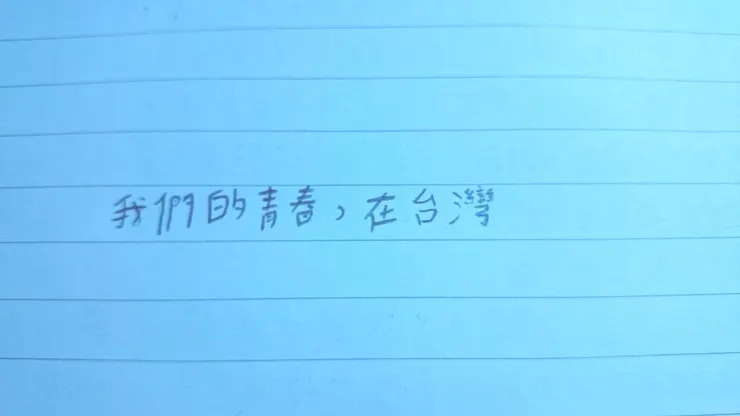 我們的青春，在台灣